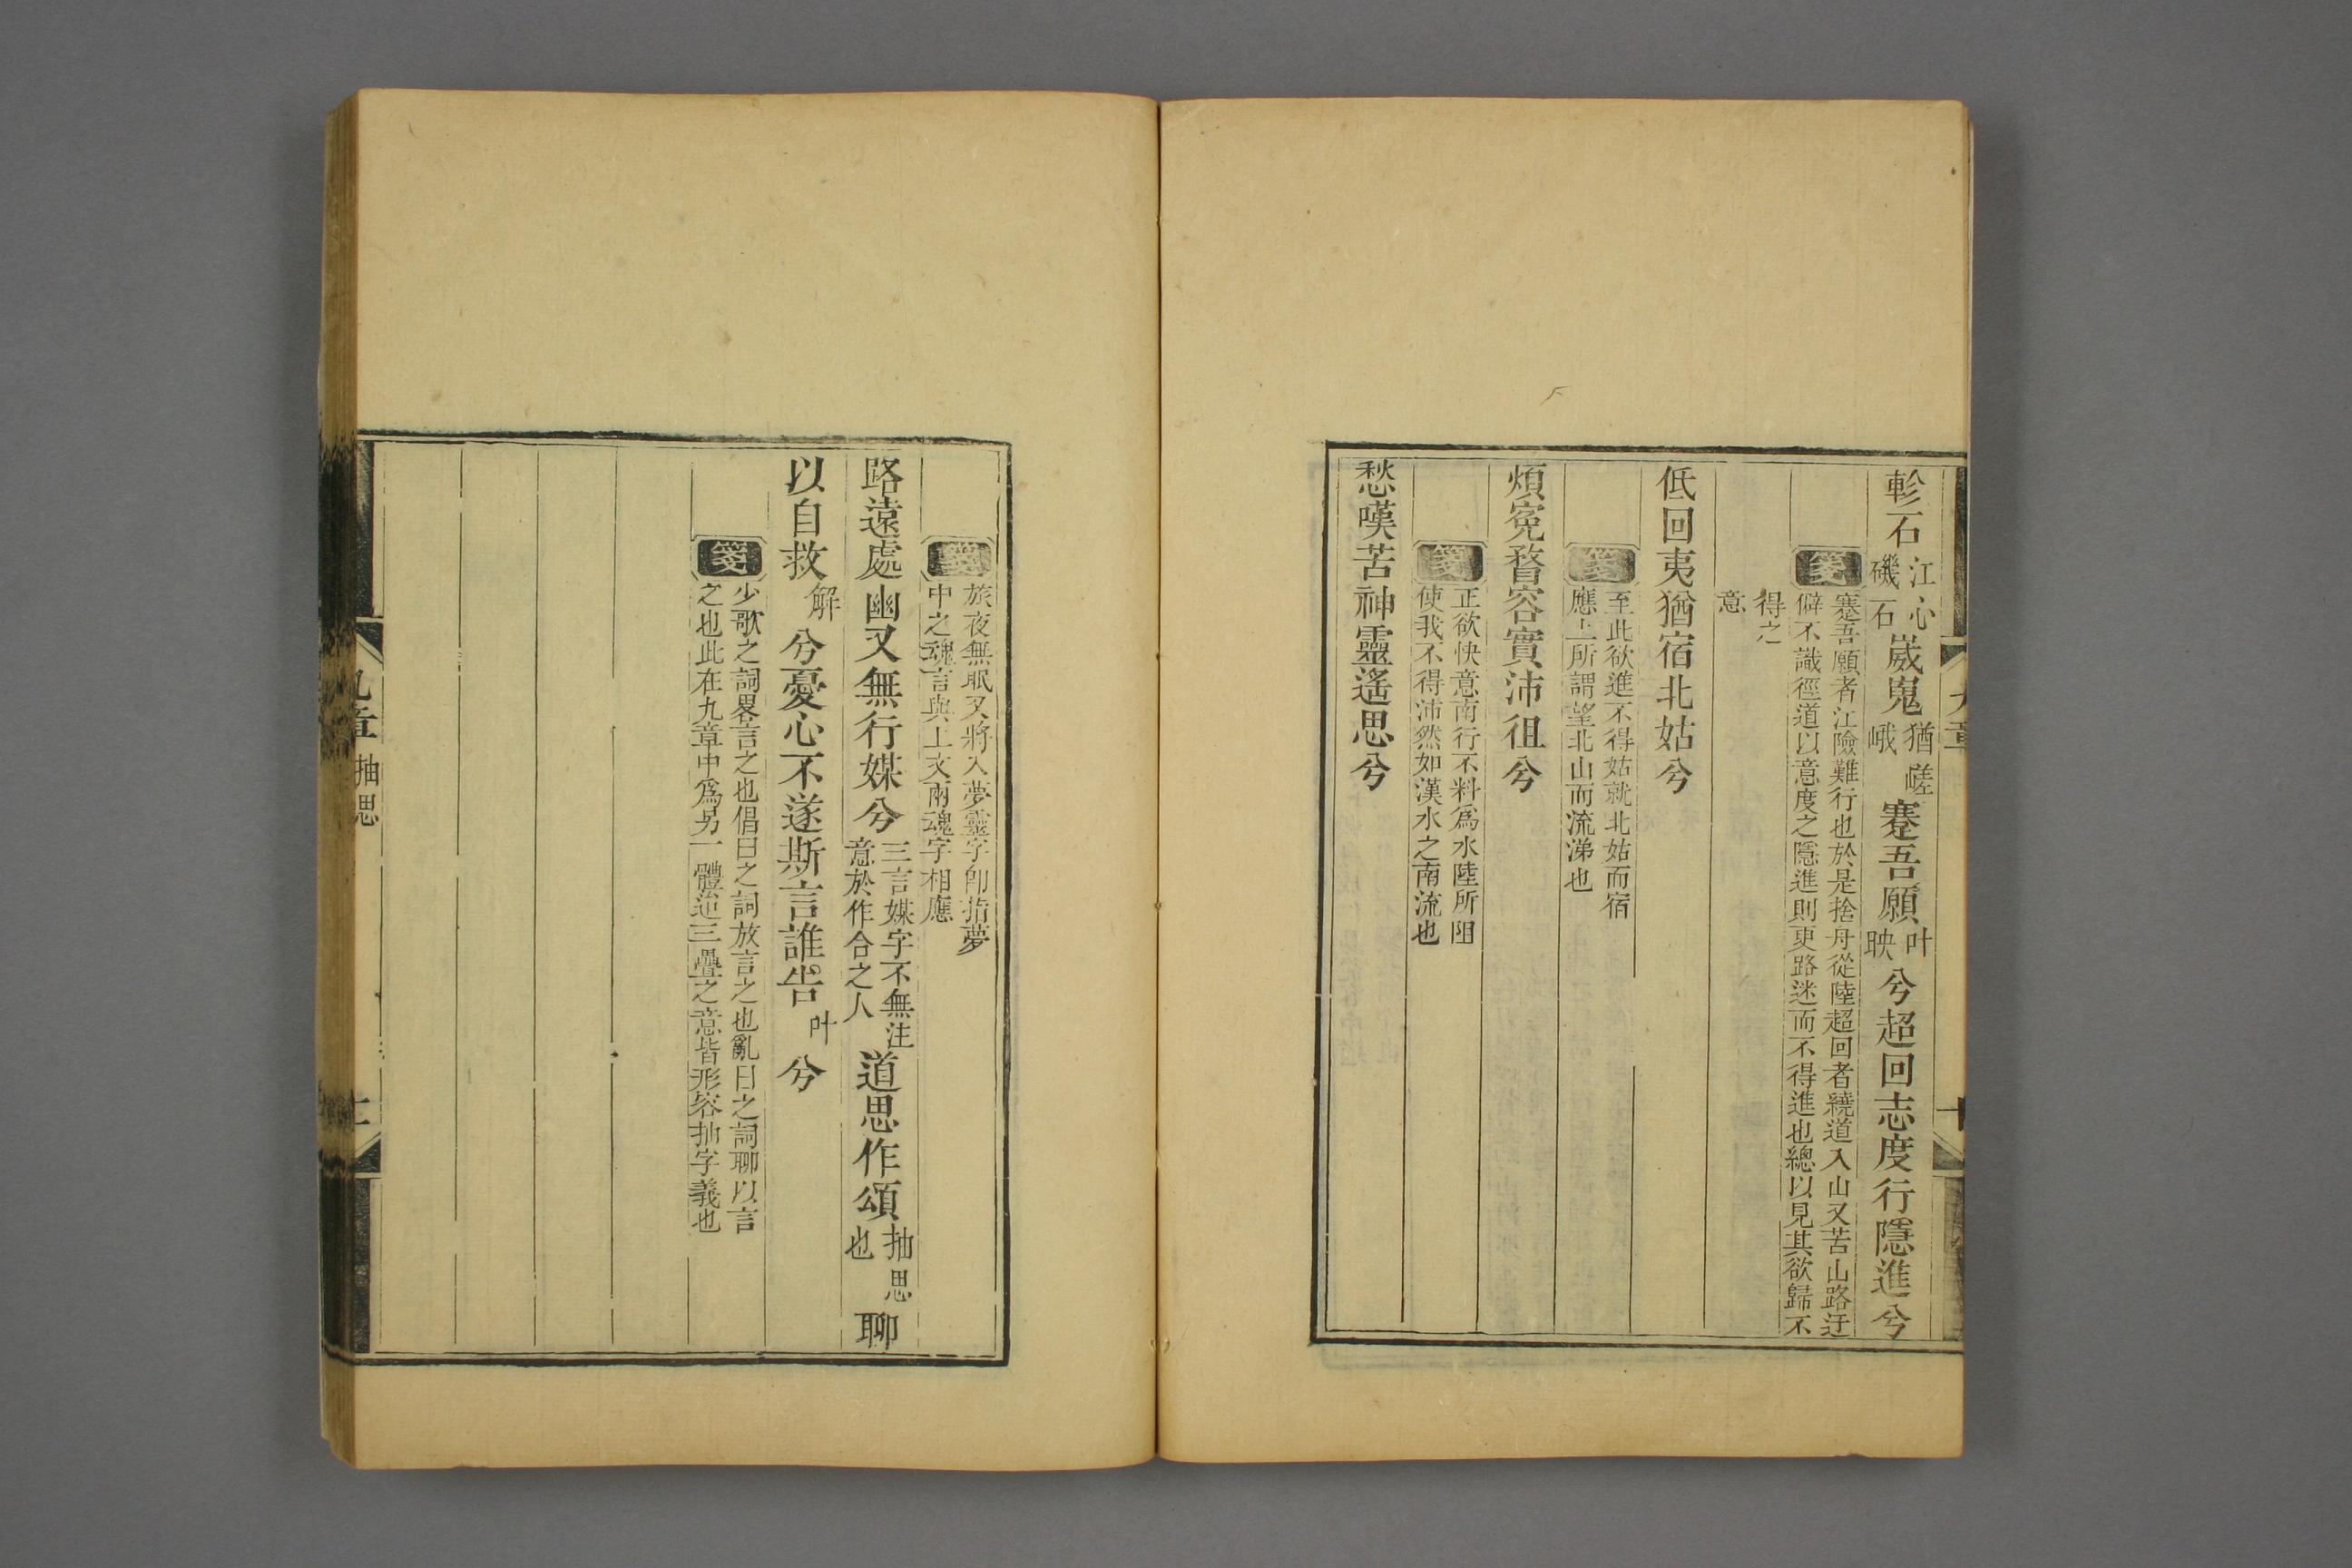 軫石江心磯石崴嵬猶嵯峨蹇吾願叶映兮超回志度行隱進兮
箋蹇吾願者江險難行也於是捨舟從陸超回者繞道入山又苦山路迂
僻不識徑道以意度之隱進則更路迷而不得進也總以見其欲歸不
得之
意
低回夷猶宿北姑兮
箋至此欲進不得姑就北姑而宿
應上所謂望北山而流涕也
煩寃瞀容實沛徂兮
箋正欲快意南行不料爲水陸所阻
使我不得沛然如漢水之南流也
愁嘆苦神靈遙思兮
箋旅夜無眠又將入夢靈字卽指夢
中之魂言與上文兩魂字相應
路遠處幽又無行媒兮三言媒字不無注意於作合之人道思作頌抽思也聊
以自救解兮憂心不遂斯言誰告叶兮
箋少歌之詞畧言之也倡曰之詞放言之也亂曰之詞聊以言
之也此在九章中爲另一體迨三疊之意皆形容抽字義也
九章 抽思